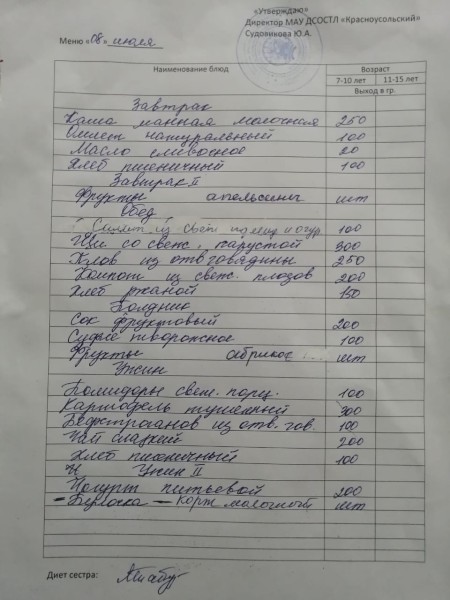 «Утверждаю»
Директор МАУ ДСОСТЛ «Красноусольский»
Меню «08» июля Судовикова Ю.А.
Наименование блюд Возраст
7-10 лет 11-15 лет
Выход в гр.
Завтрак
Каша манная молочная 250
Омлет натуральный 100
Масло сливочное 20
Хлеб пшеничный 100
Завтрак II
Фрукты апельсины шт
Обед
Салат из свеж помид и огур 100
Щи со свеж. карустой 300
Плов из отв говядины 250
Компот из свеж. плодов 200
Хлеб ржаной 150
Полдник
Сок фруктовый 200
Суфле творожное 100
Фрукты абрикос шт
Ужин
Помидоры свеж. порц. 100
Картофель тушенный 300
Бефстроганов из отв. гов. 100
Чай сладкий 200
Хлеб пшеничный 100
Ужин II
Йогурт питьевой 200
- Булочка - Корж молочный шт
Диет сестра: